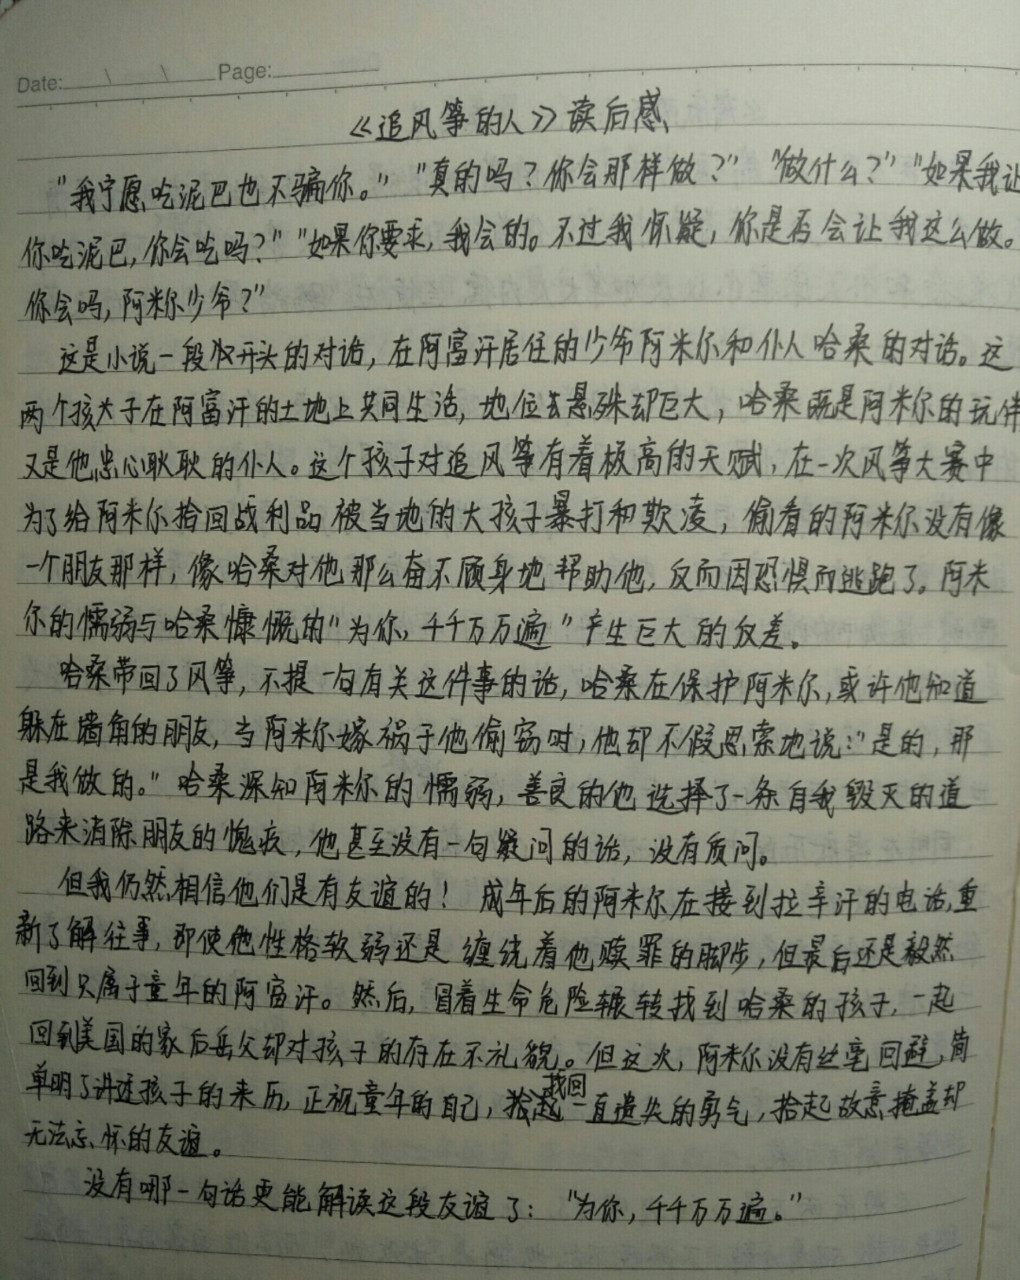 Date: \ \ Page:
《追风筝的人》读后感
"我宁愿吃泥巴也不骗你。" "真的吗？你会那样做？" "做什么？" "如果我让
你吃泥巴，你会吃吗？" "如果你要求，我会的。不过我怀疑，你是否会让我这么做。
你会吗，阿米尔少爷？"
这是小说一段仅开头的对话，在阿富汗居住的少爷阿米尔和仆人哈桑的对话。这
两个孩子在阿富汗的土地上共同生活，地位悬殊却巨大，哈桑既是阿米尔的玩伴
又是他忠心耿耿的仆人。这个孩子对追风筝有着极高的天赋，在一次风筝大赛中
为了给阿米尔拾回战利品被当地的大孩子暴打和欺凌，偷看的阿米尔没有像
一个朋友那样，像哈桑对他那么奋不顾身地帮助他，反而因恐惧而逃跑了。阿米
尔的懦弱与哈桑慷慨的"为你，千千万万遍"产生巨大的反差。
哈桑带回了风筝，不提一句有关这件事的话，哈桑在保护阿米尔，或许他知道
躲在墙角的朋友，当阿米尔嫁祸于他偷窃时，他却不假思索地说："是的，那
是我做的。"哈桑深知阿米尔的懦弱，善良的他选择了一条自我毁灭的道
路来消除朋友的愧疚，他甚至没有一句疑问的话，没有质问。
但我仍然相信他们是有友谊的！成年后的阿米尔在接到拉辛汗的电话，重
新了解往事，即使他性格软弱还是缠绕着他赎罪的脚步，但最后还是毅然
回到只属于童年的阿富汗。然后，冒着生命危险辗转找到哈桑的孩子，一起
回到美国的家后岳父却对孩子的存在不礼貌。但这次，阿米尔没有丝毫回避，简
单明了讲述孩子的来历，正视童年的自己，找回一直遗失的勇气，拾起故意掩盖却
无法忘怀的友谊。
没有哪一句话更能解读这段友谊了："为你，千千万万遍。"